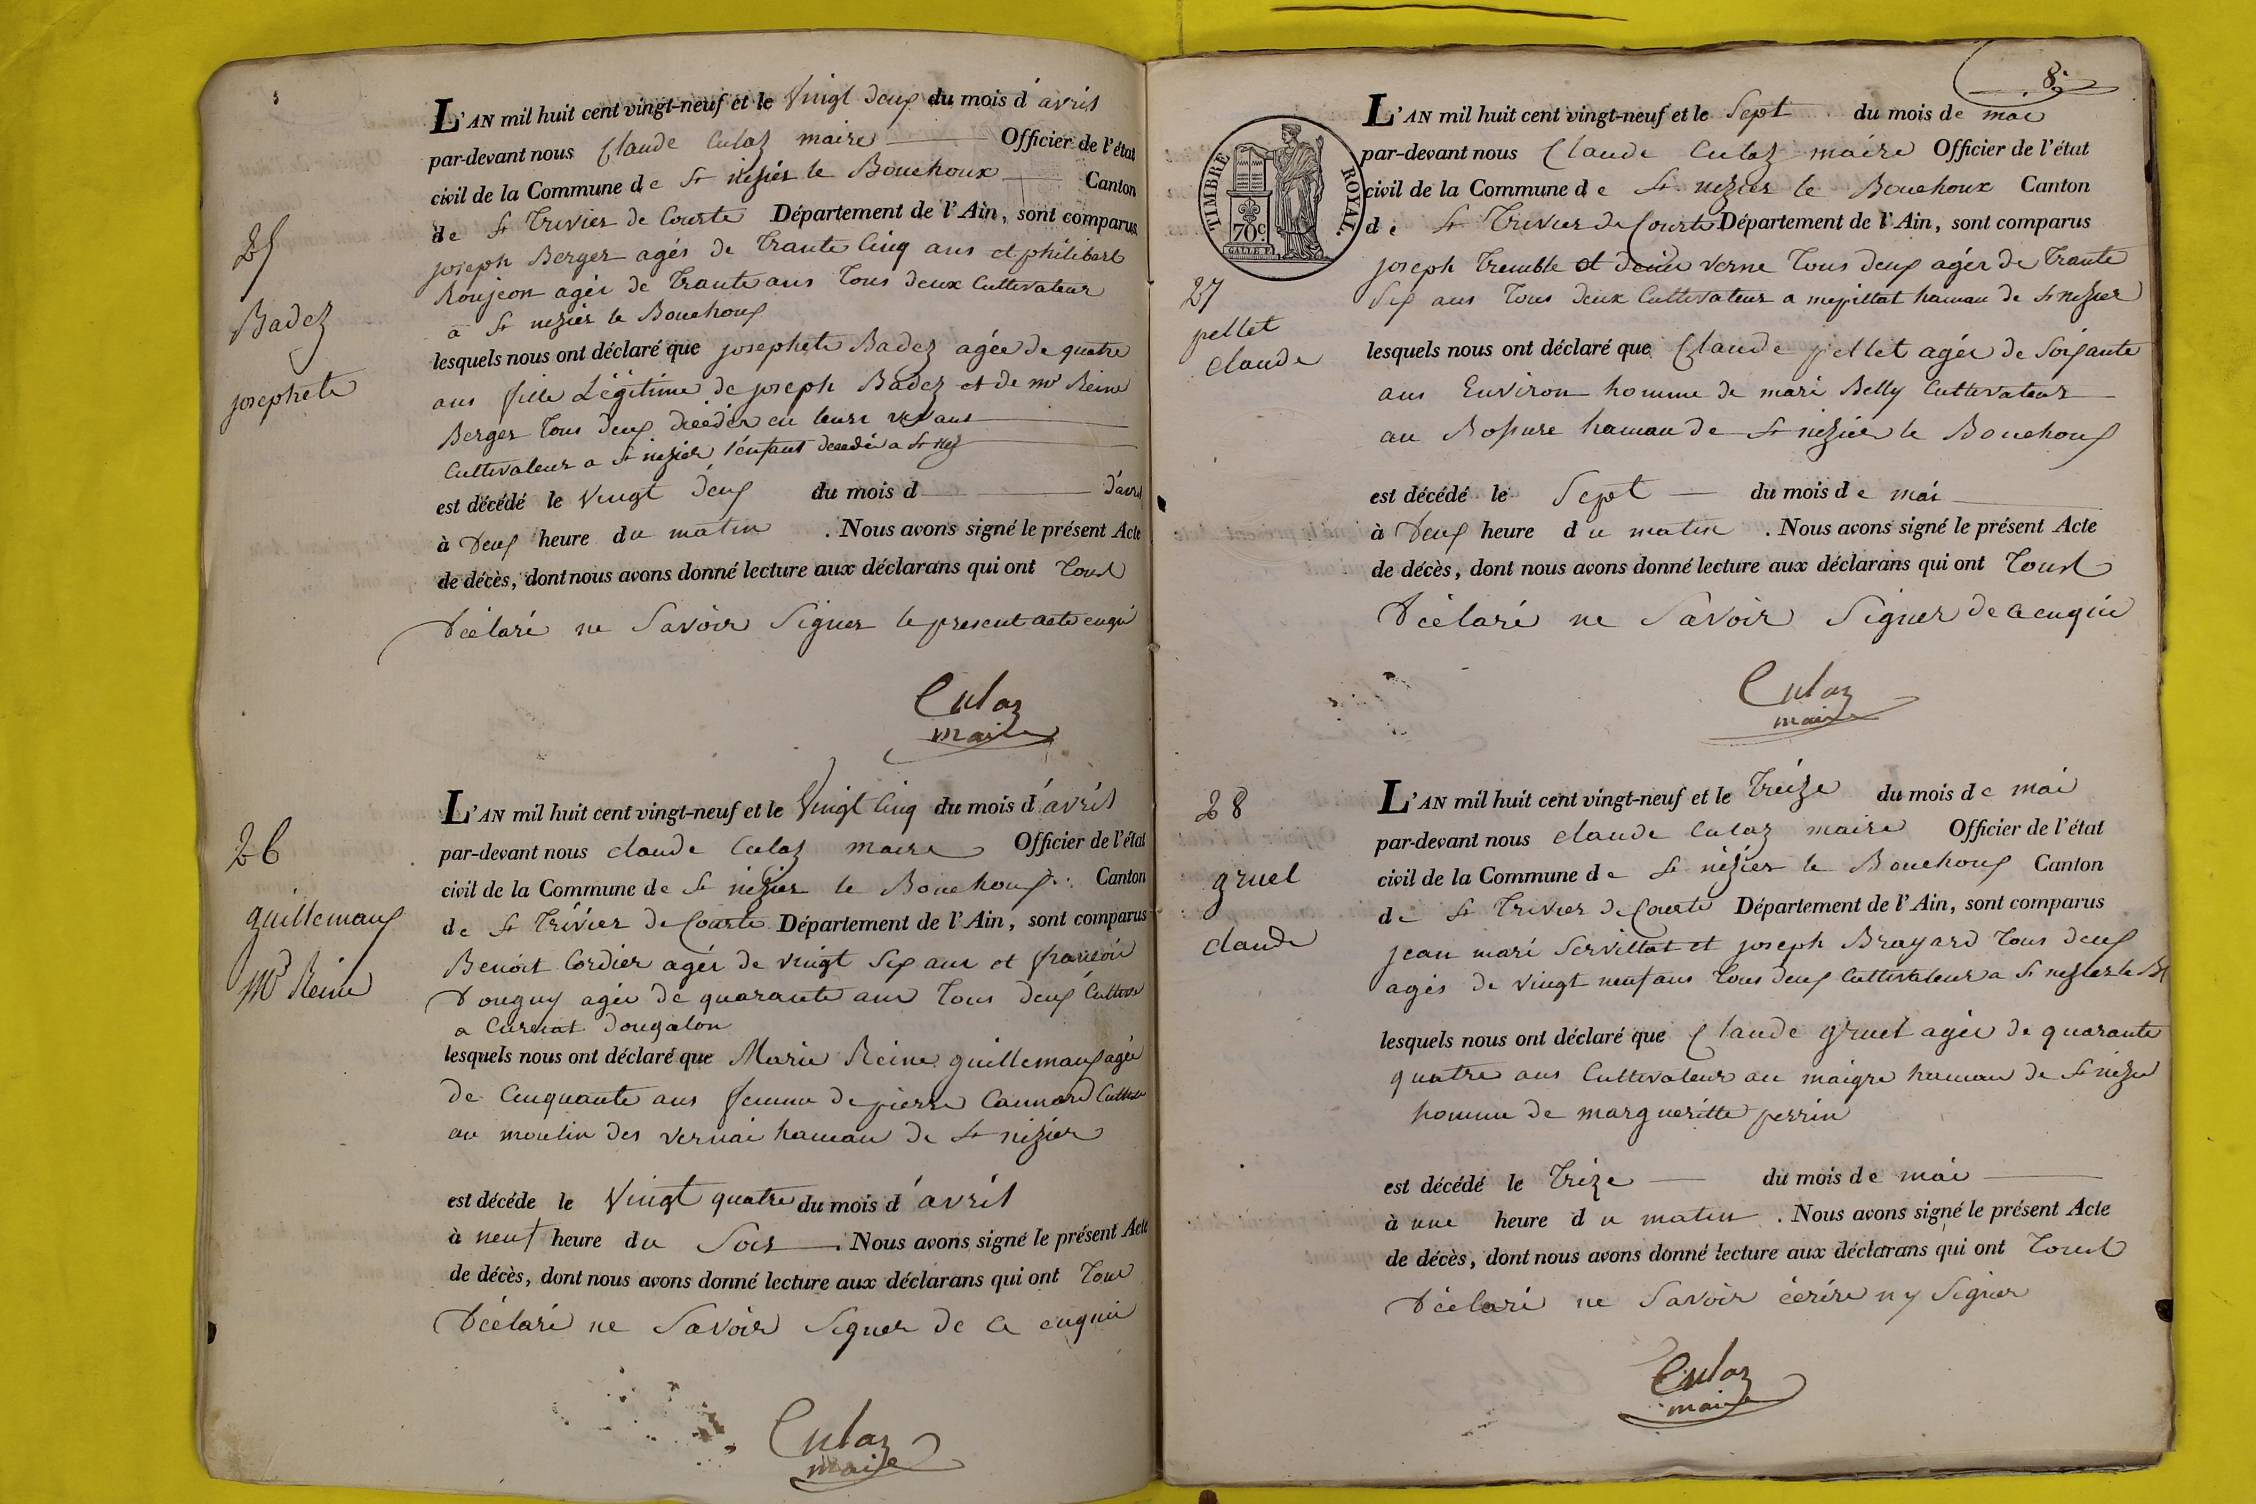 25
Badez
josephete
L'AN mil huit cent vingt-neuf et le Vingt deux du mois d'avril
par-devant nous Claude Culaz maire Officier de l'état
civil de la Commune de St nizier le Bouchoux Canton
de St Trivier de Courte Département de l'Ain, sont comparus
joseph Berger agés de Trante Cinq ans et philibert
Roujeon agér de Trante ans Tous deux Cultivateur
a St nezier le Bouchoux
lesquels nous ont déclaré que josephete Badez agée de quatre
ans fille Légitime de joseph Badez et de mie Reine
Berger Tous deux décédér en leurs vivans
Cultivateur a St nizier l'enfant decedér a St nez
est décédé le Vingt deux du mois d d'avril
à Deux heure du matin . Nous avons signé le présent Acte
de décès, dont nous avons donné lecture aux déclarans qui ont Tous
Déclaré ne Savoir Signer le present acte enqui
Culaz
maire
26
guillemaux
Mie Reine
L'AN mil huit cent vingt-neuf et le Vingt Cinq du mois d'avril
par-devant nous claude Culaz maire Officier de l'état
civil de la Commune de St nizier le Bouchoux Canton
de St Trivier de Courte Département de l'Ain, sont comparus
Benoit Cordier agér de vingt Six ans et fransoir
Douguy agér de quarante ans Tous deux Cultiva
a Curciat Dongalon
lesquels nous ont déclaré que Marie Reine guillemaux agée
de Cinquante ans femme de pierre Cannard Cultiva
au moulin des vernai hamau de St nizier
est décéde le Vingt quatre du mois d'avril
à neuf heure du Soir . Nous avons signé le présent Acte
de décès, dont nous avons donné lecture aux déclarans qui ont Tous
Déclaré ne Savoir Signer de ce enquir
Culaz
maire
8.
TIMBRE ROYAL.
70c
27
pellet
claude
L'AN mil huit cent vingt-neuf et le Sept du mois de mai
par-devant nous Claude Culaz maire Officier de l'état
civil de la Commune de St. nizier le Bouchoux Canton
de St Trivier de Courte Département de l'Ain, sont comparus
joseph Tremble et denir verne Tous deux agér de Trante
Six ans Tous deux Cultivateur a mepillat hamau de St nizier
lesquels nous ont déclaré que Claude pellet agér de Soixante
ans Environ homme de mari Belly Cultivateur
au Rossure hamau de St nizier le Bouchoux
est décédé le Sept du mois de mai
à Deux heure du matin . Nous avons signé le présent Acte
de décès, dont nous avons donné lecture aux déclarans qui ont Tous
Déclaré ne Savoir Signer de ce enquir
Culaz
maire
28
gruel
claude
L'AN mil huit cent vingt-neuf et le Treize du mois de mai
par-devant nous claude Culaz maire Officier de l'état
civil de la Commune de St nizier le Bouchoux Canton
de St Trivier de Courte Département de l'Ain, sont comparus
jean mari Servillat et joseph Brayard Tous deux
agés de vingt neuf ans Tous deux Cultivateur a St nezier le B
lesquels nous ont déclaré que Claude gruel agér de quarante
quatre ans Cultivateur au maigre hamau de St nizier
homme de margueritte perrin
est décédé le Trize du mois de mai
à une heure du matin . Nous avons signé le présent Acte
de décès, dont nous avons donné lecture aux déclarans qui ont Tous
Déclaré ne Savoir écrire ny Signer
Culaz
maire